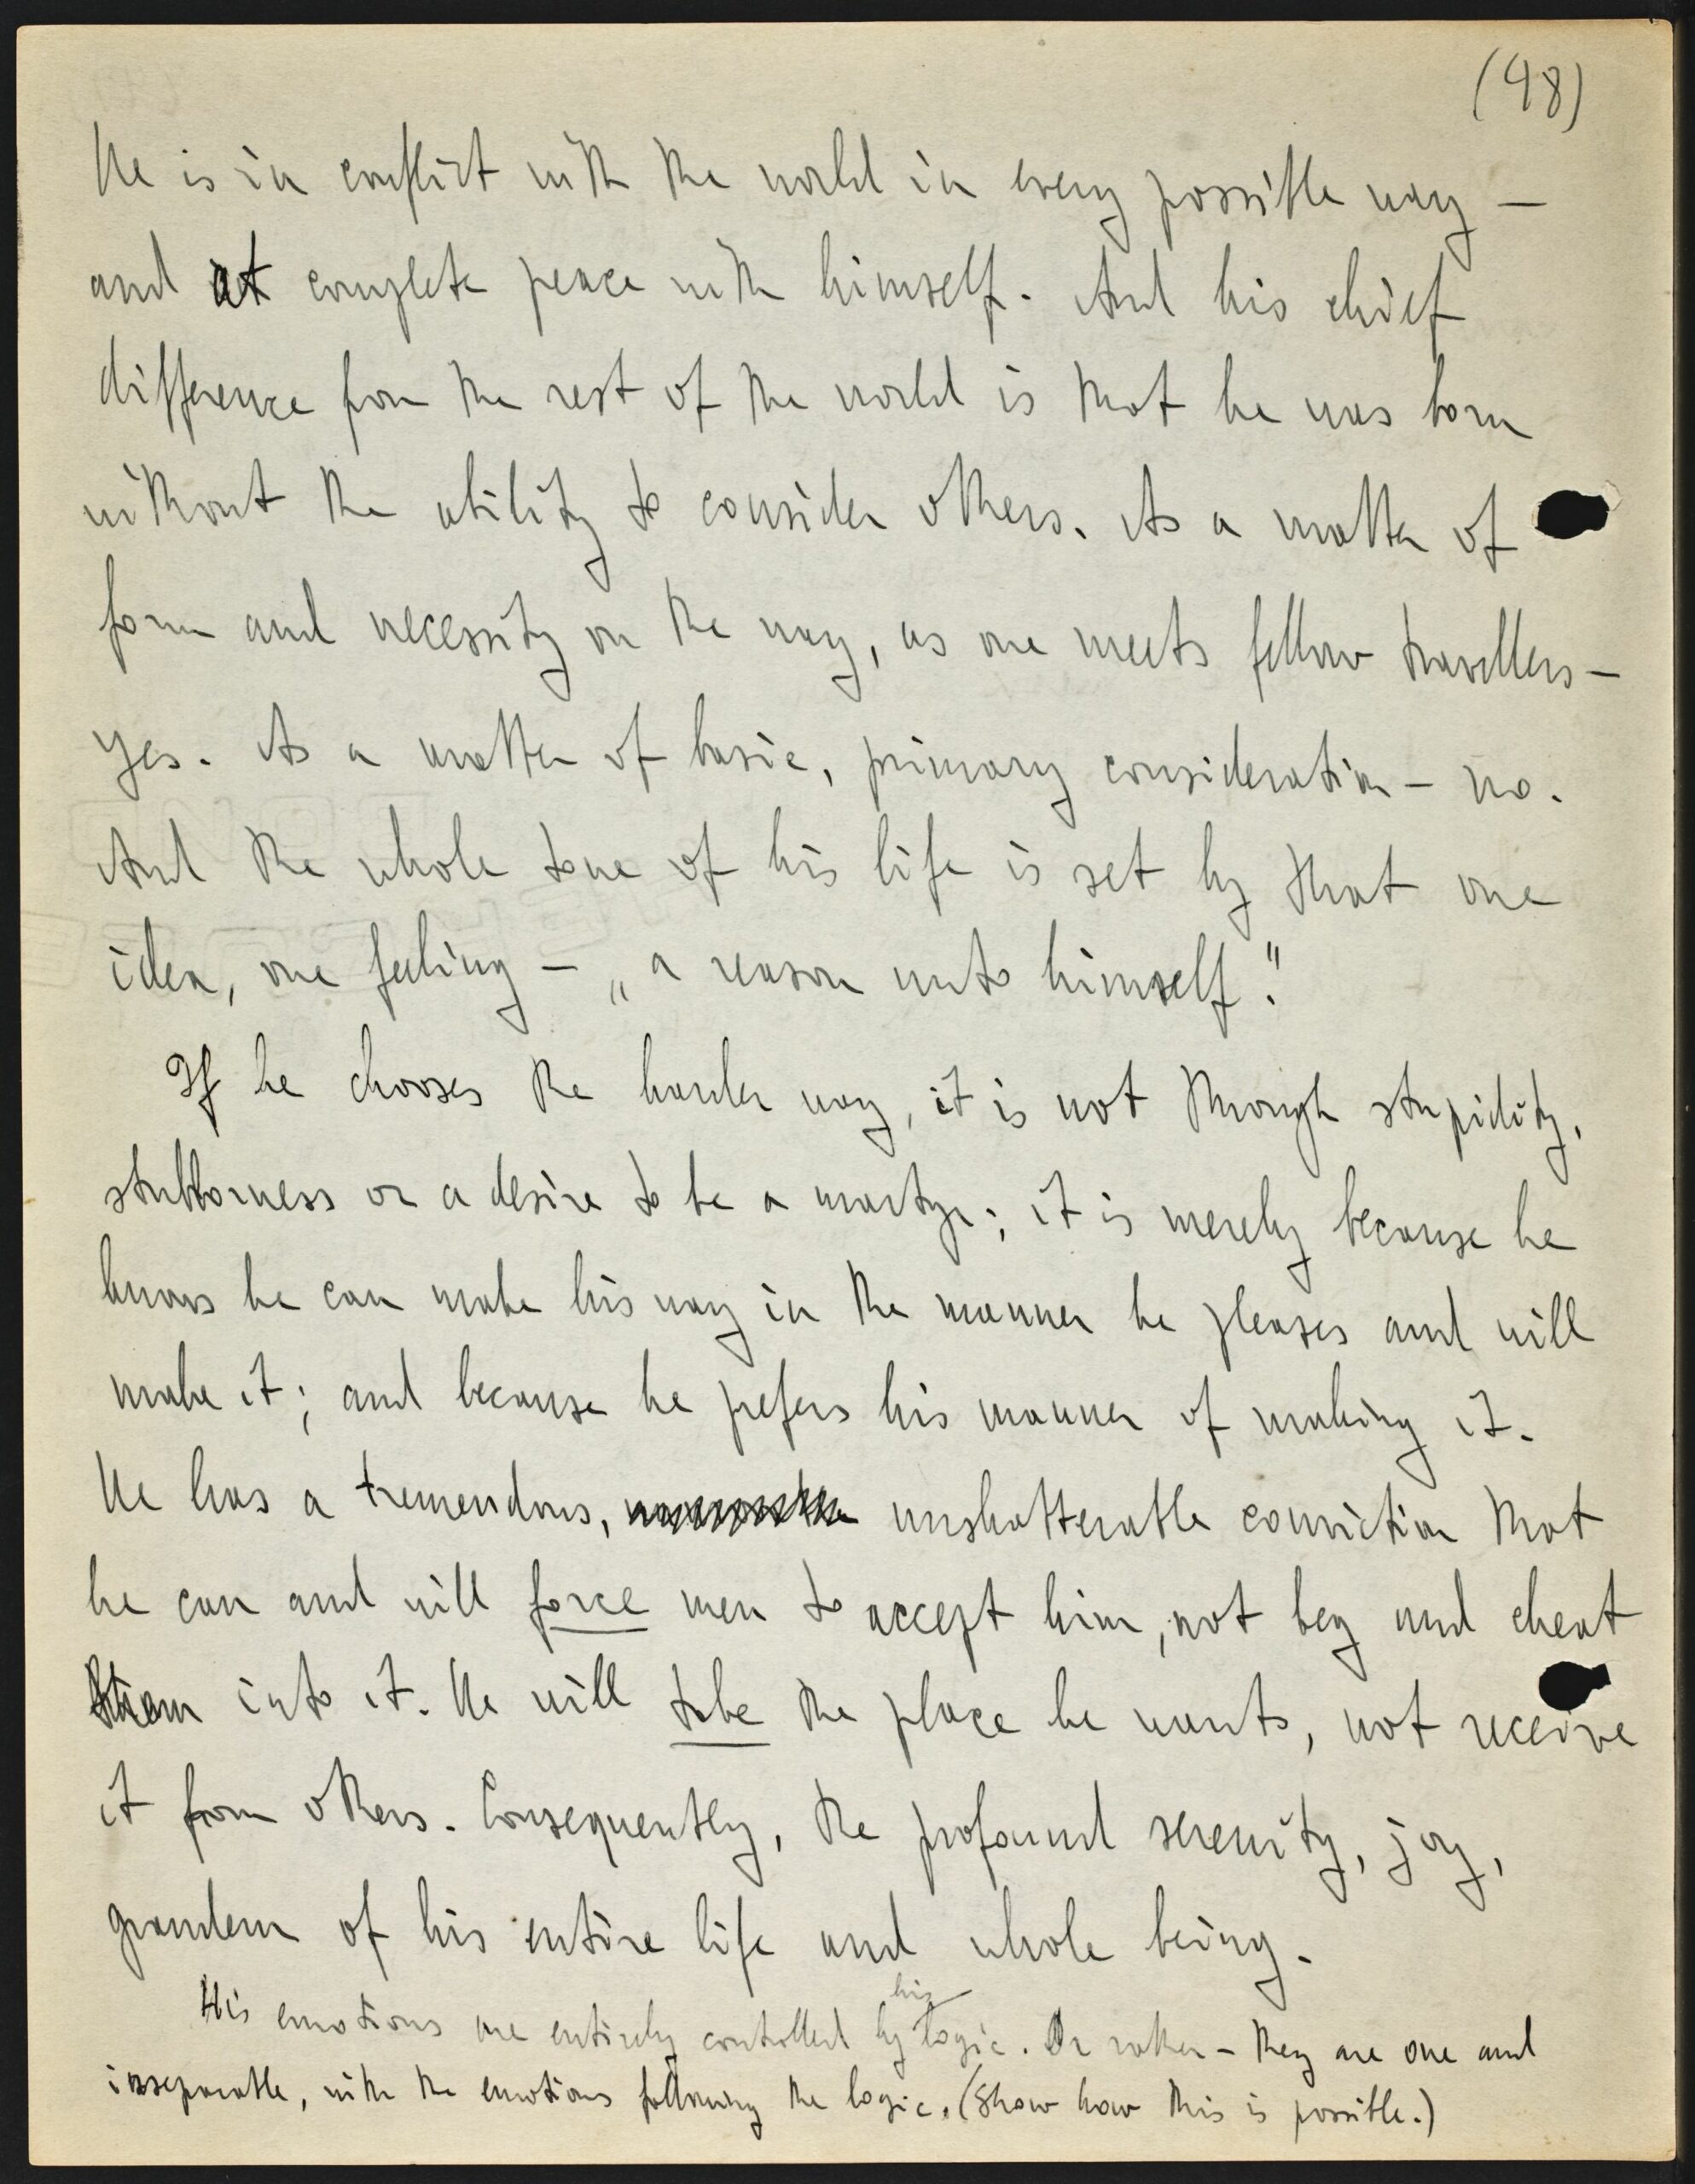 (48)
He is in conflict with the world in every possible way —
and at complete peace with himself. And his chief
difference from the rest of the world is that he was born
without the ability to consider others. As a matter of
form and necessity on the way, as one meets fellow travellers —
yes. As a matter of basic, primary consideration — no.
And the whole tone of his life is set by that one
idea, one feeling — „a reason unto himself."
If he chooses the harder way, it is not through stupidity,
stubborness or a desire to be a martyr; it is merely because he
knows he can make his way in the manner he pleases and will
make it; and because he prefers his manner of making it.
He has a tremendous, unshatterable conviction that
he can and will force men to accept him, not beg and cheat
them into it. He will take the place he wants, not receive
it from others. Consequently, the profound serenity, joy,
grandeur of his entire life and whole being.
His emotions are entirely controlled by his logic. Or rather — they are one and
inseparable, with the emotions following the logic. (Show how this is possible.)